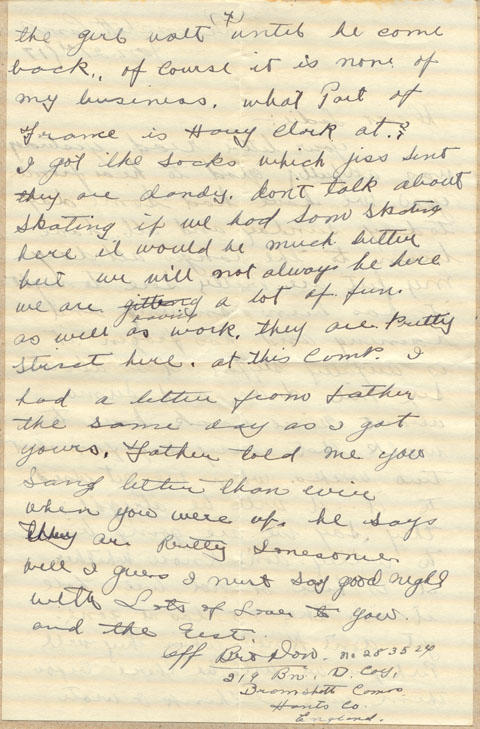 (4)
the girl wait until he come
back., of course it is none of
my business. what Part of
France is Harry Clork at.?
I got the socks which jiss sent
they are dandy. dont talk about
skating if we had som skating
here it would be much better
but we will not always be here
we are having a lot of fun.
as well as work. they are Pretty
strict here. at this Camp. I
had a letter from father
the same day as I got
yours. Father told me you
sang better than ever
when you were up. he says
they are Pretty Lonesome
well I guess I must say good night
with Lots of Love to you.
and the Rest.
Aff Bro Don. no 283524
219 Bn. D. Coy,
Bramshott Camp.
Hants Co.
England.